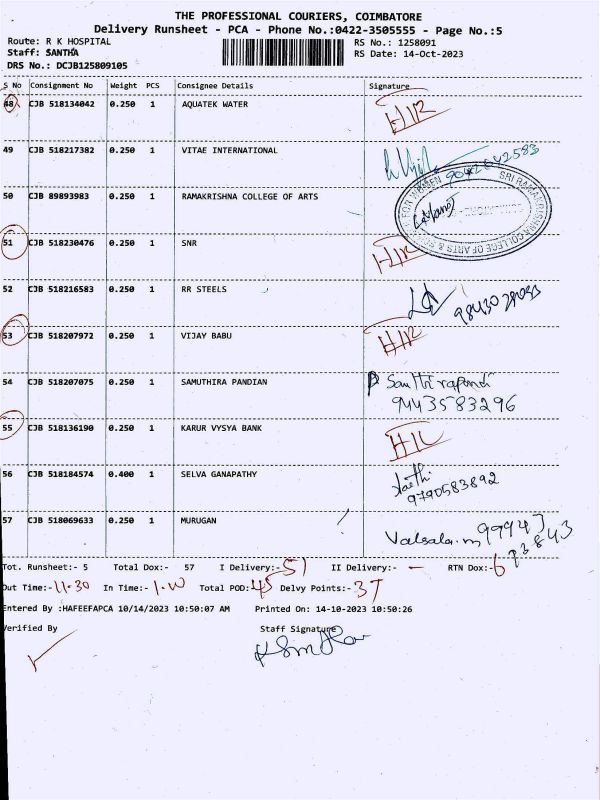 THE PROFESSIONAL COURIERS, COIMBATORE
Delivery Runsheet - PCA - Phone No.:0422-3505555 - Page No.:5
Route: R K HOSPITAL
RS No.: 1258091
Staff: SANTHA
RS Date: 14-Oct-2023
DRS No.: DCJB125809105
S No Consignment No Weight PCS Consignee Details Signature
48 CJB 518134042 0.250 1 AQUATEK WATER
49 CJB 518217382 0.250 1 VITAE INTERNATIONAL 9042642583
50 CJB 89893983 0.250 1 RAMAKRISHNA COLLEGE OF ARTS
SRI RAMAKRISHNA COLLEGE OF ARTS & FOR WOMEN
51 CJB 518230476 0.250 1 SNR
52 CJB 518216583 0.250 1 RR STEELS
53 CJB 518207972 0.250 1 VIJAY BABU
54 CJB 518207075 0.250 1 SAMUTHIRA PANDIAN
9443583296
55 CJB 518136190 0.250 1 KARUR VYSYA BANK
56 CJB 518184574 0.400 1 SELVA GANAPATHY
9790583892
57 CJB 518069633 0.250 1 MURUGAN
Tot. Runsheet:- 5 Total Dox:- 57 I Delivery:- 51 II Delivery:- - RTN Dox:- 6
Out Time:- 11.30 In Time:- Total POD: 45 Delvy Points:- 37
Entered By :HAFEEFAPCA 10/14/2023 10:50:07 AM Printed On: 14-10-2023 10:50:26
Verified By Staff Signature